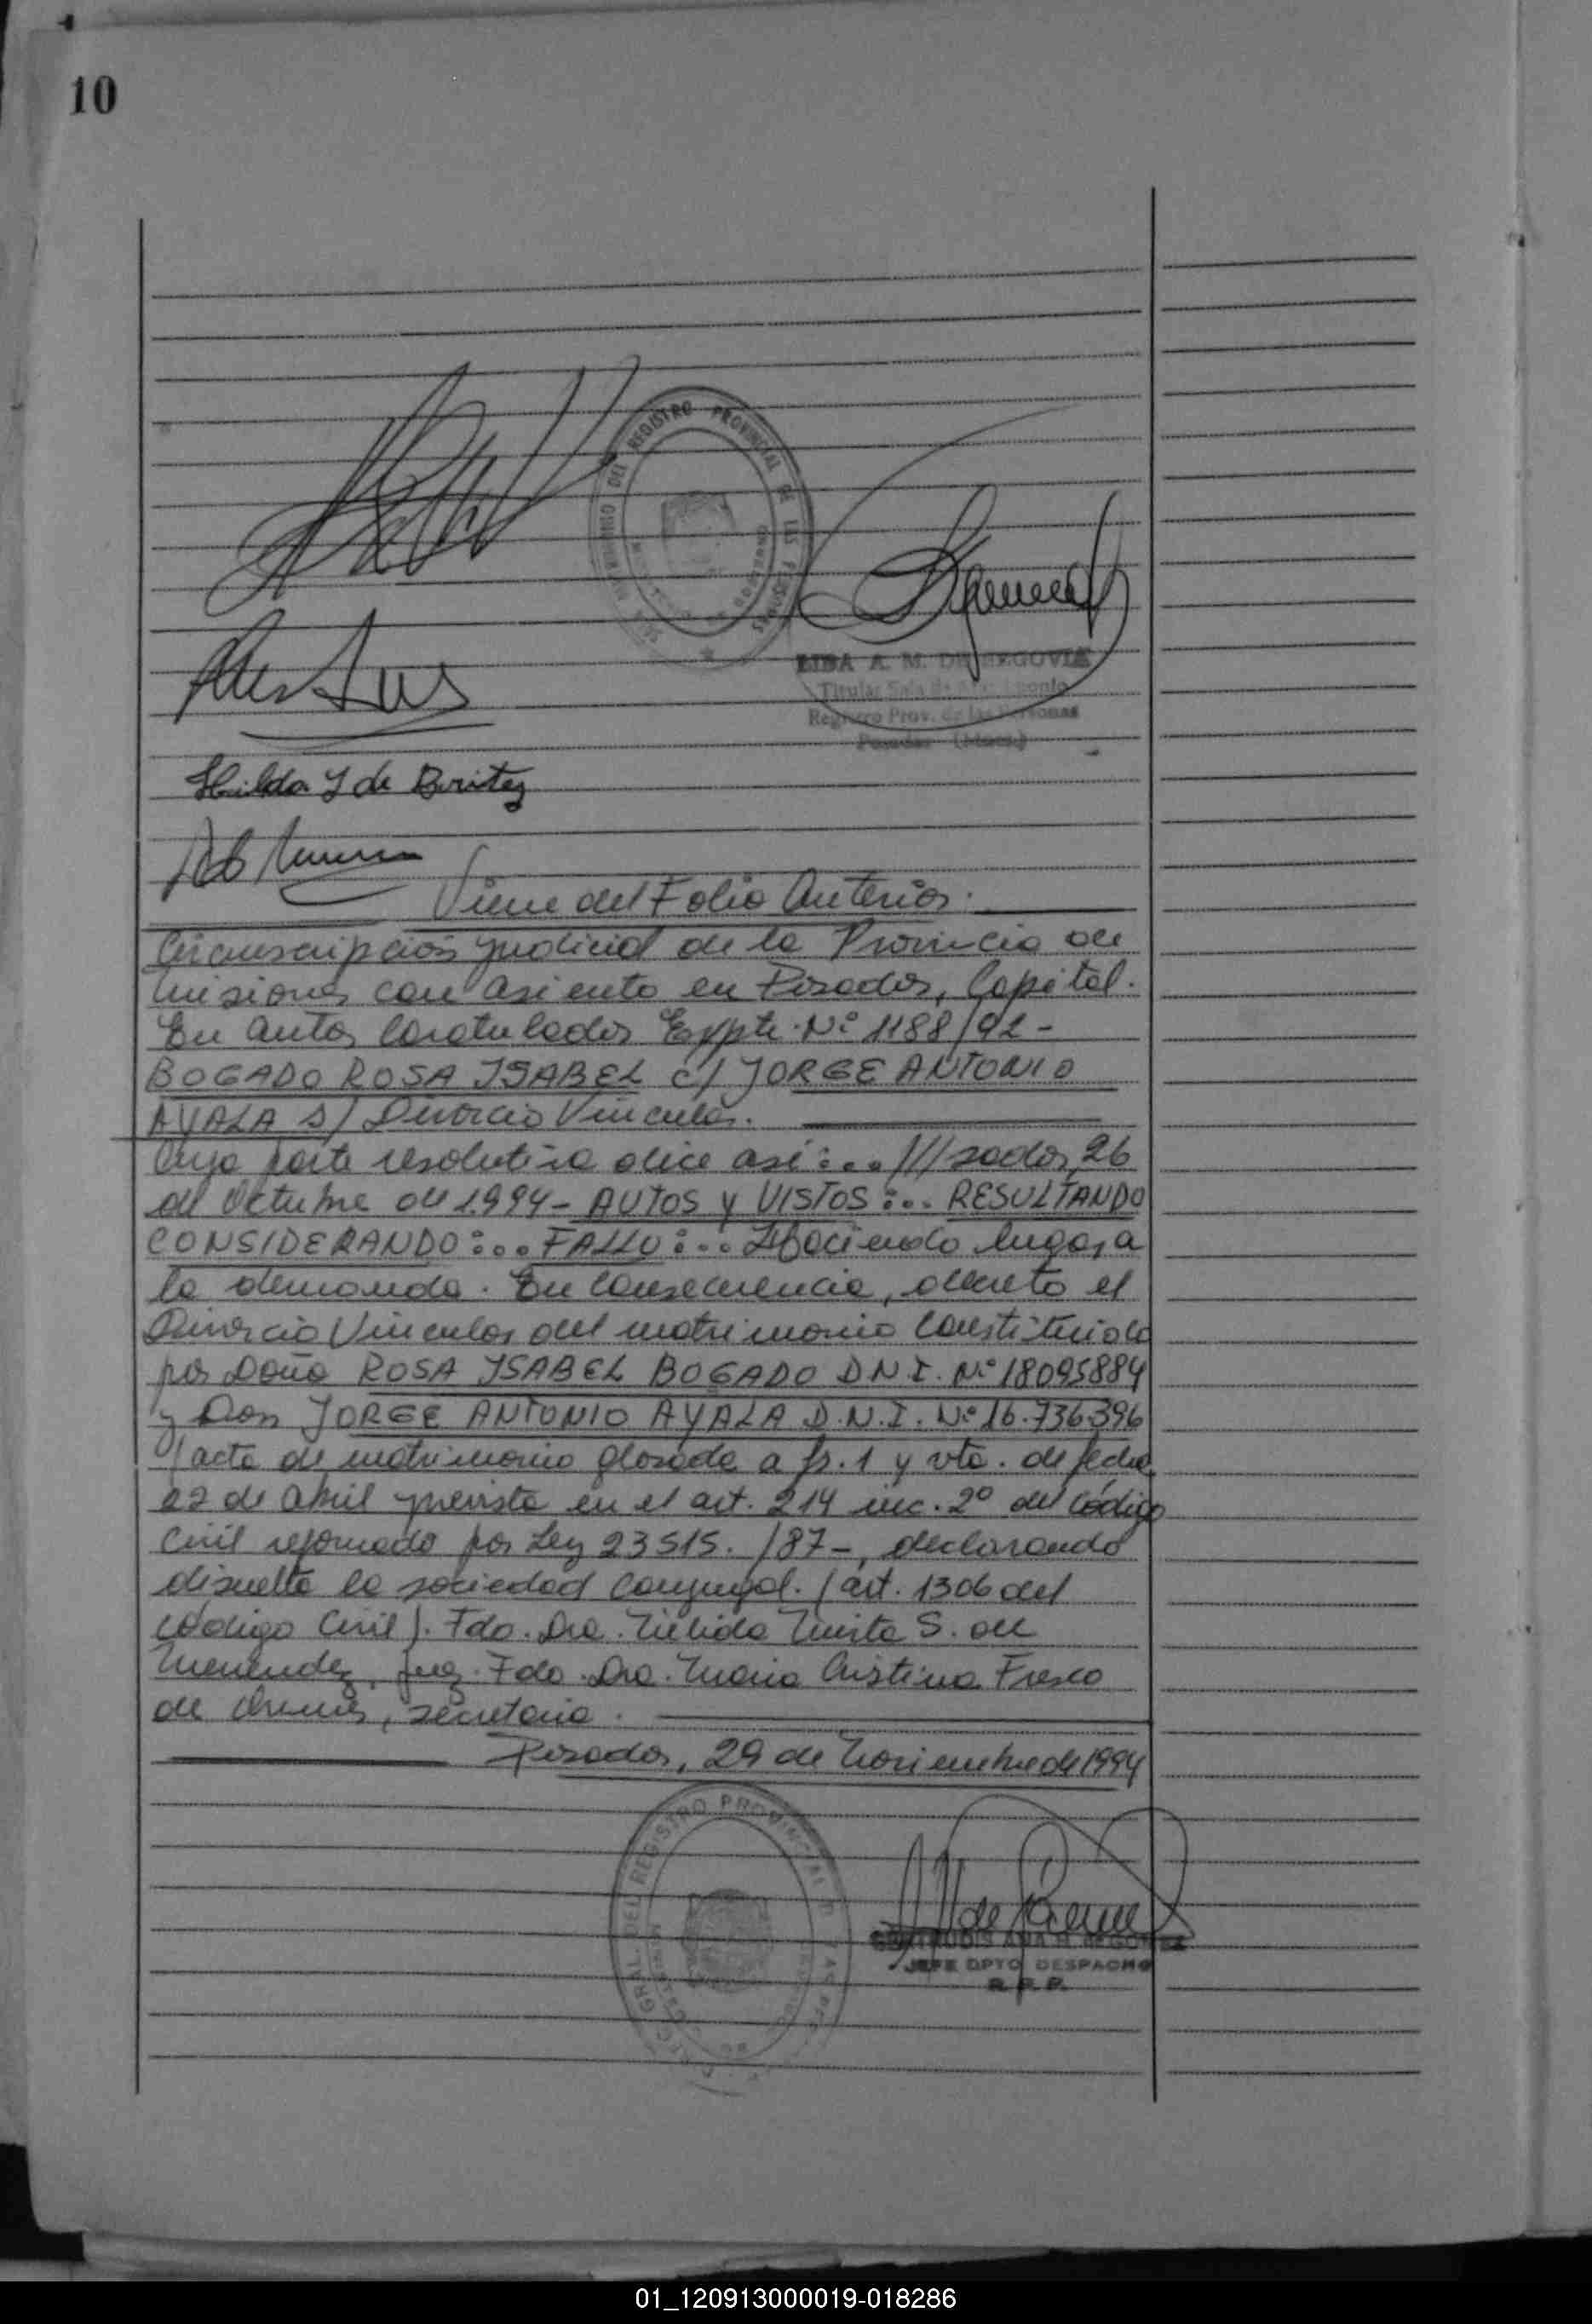 10
DEL REGISTRO PROVINCIAL DE LAS PERSONAS
LIDA A. M. DE SEGOVIA
Titular Sala de
Registro Prov. de las Personas
Posadas (Mnes.)
Hilda Y de Britez
Viene del Folio Anterior.
Circunscripción Judicial de la Provincia de
Misiones con asiento en Posadas, Capital.
En autos Caratulados Expte. Nº 1188/92-
BOGADO ROSA ISABEL c/ JORGE ANTONIO
AYALA S/ Divorcio Vincular.
Cuya parte resolutiva dice así:... ///sadas, 26
de Octubre de 1.994- AUTOS y VISTOS:... RESULTANDO
CONSIDERANDO:... FALLO:... Haciendo lugar, a
la demanda. En Consecuencia, decreto el
Divorcio Vincular del matrimonio Constituido
por Doña ROSA ISABEL BOGADO D.N.I. Nº 18095884
y Don JORGE ANTONIO AYALA D.N.I. Nº 16.736396
(acta de matrimonio glosada a fs. 1 y vta. de fecha
22 de Abril prevista en el art. 214 inc. 2º del Código
Civil reformado por Ley 23515. /87-, declarando
disuelta la sociedad Conyugal. (art. 1306 del
Código Civil). Fdo. Dra. Mirta S. de
Menendez, Juez. Fdo. Dra. Maria Cristina Fresco
de, secretaria.
Posadas, 29 de Noviembre de 1994
GRAL. DEL REGISTRO PROVINCIAL DE LAS PER
GERTRUDIS ANA
JEFE DPTO DESPACHO
R. P. P.
01_120913000019-018286